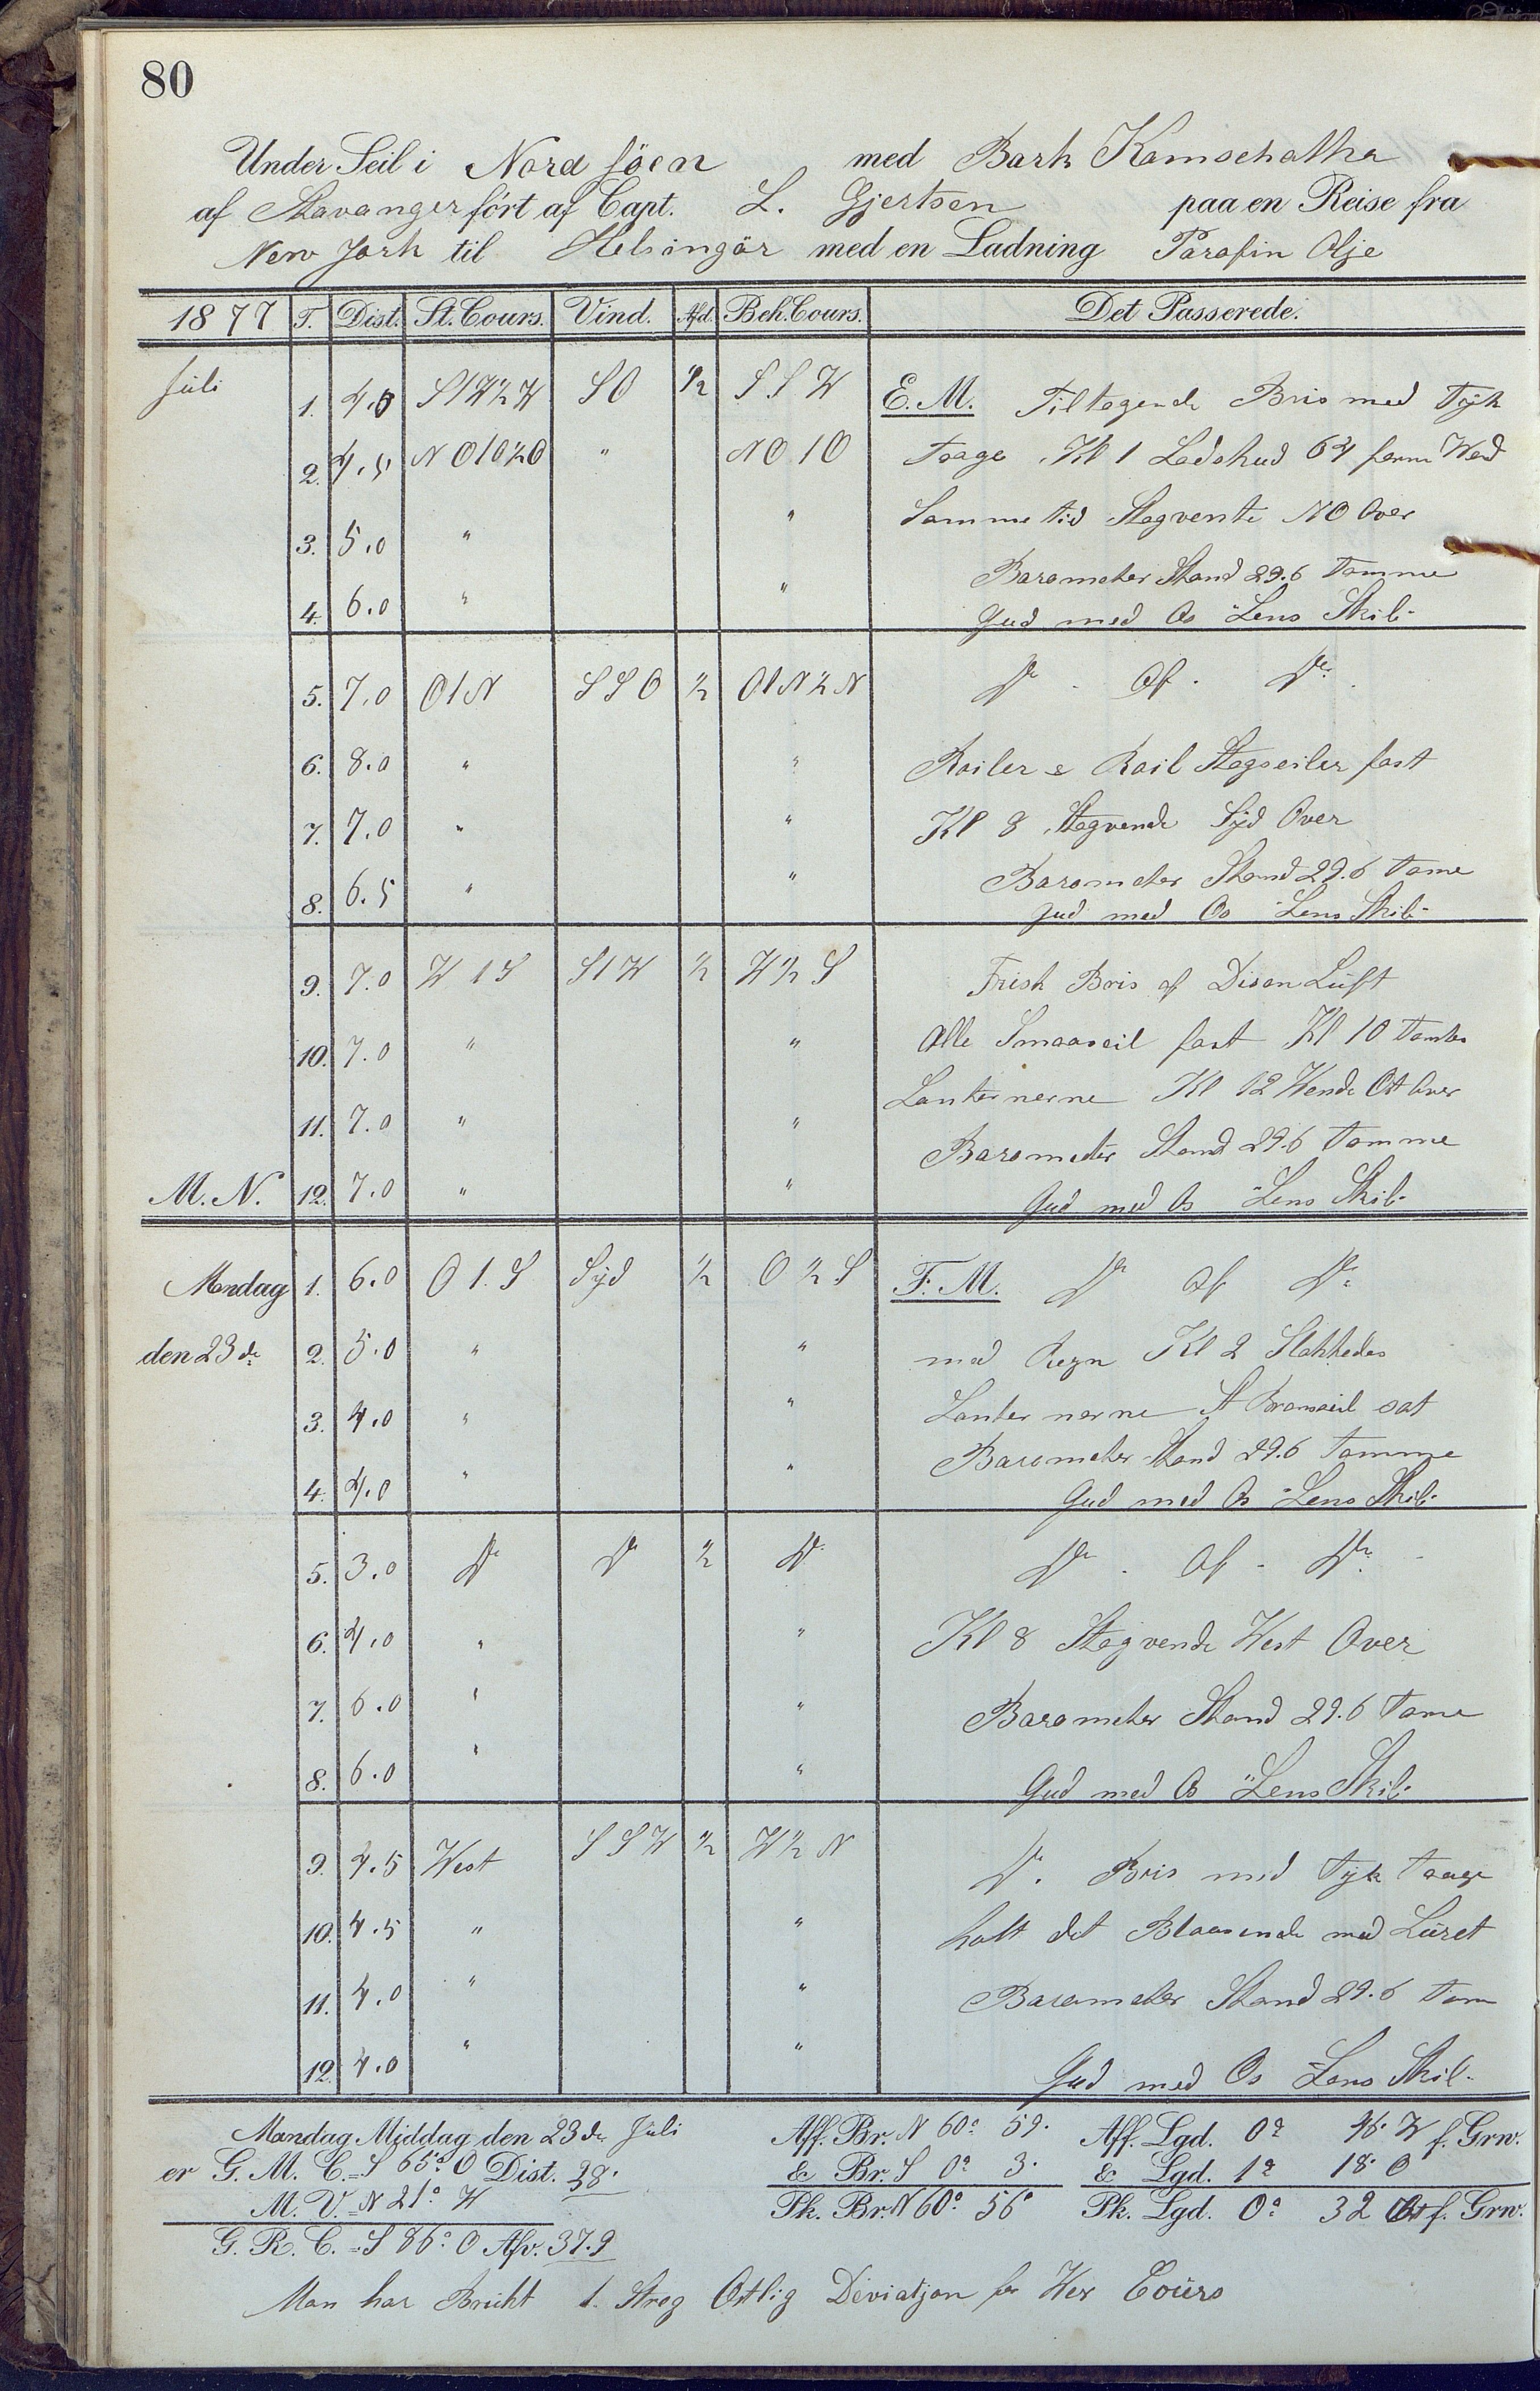 80
Under Seil i Nord Söen med Bark Kamschatka
af Stavanger fört af Capt. L. Gjertsen paa en Reise fra
New York til Helsingör med en Ladning Parafin Olje
1877 T. Dist. St. Cours. Vind. Afd. Beh. Cours. Det Passerede.
Juli 1. 4.0 S1W½W SO ½ SSW E.M. Tiltagende Bris med Tyk
2. 4.5 NO1O½O " NO1O Taage. Kl 1 Lodskud 64 favne Wand
3. 5.0 " " Samme tid Stagvente NO Over
4. 6.0 " " Barometer Stand 29.6 Tomme
Gud med Os "Lens Skib"
5. 7.0 O1N SSO ½ O1N½N Do. Af. Do.
6. 8.0 " " Roiler & Roil Stagseiler fast
7. 7.0 " " Kl 8 Stagvende Syd Over
8. 6.5 " " Barometer Stand 29.6 Tome
Gud med Os "Lens Skib"
9. 7.0 W1S S1W ½ W½S Frisk Bris af Disen Luft
10. 7.0 " " Alle Smaaseil fast Kl 10 Tentes
11. 7.0 " " Lanternerne Kl 12 Wende Ost Over
Barometer Stand 29.6 Tomme
M.N. 12. 7.0 " " Gud med Os "Lens Skib"
Mandag 1. 6.0 O1.S Syd ½ O½S F.M. Do Af Do
den 23de 2. 5.0 " " med Regn Kl 2 Slukkedes
3. 4.0 " " Lanternerne St Bramseil sat
4. 4.0 " " Barometer Stand 29.6 Tomme
Gud med Os "Lens Skib"
5. 3.0 Do Do ½ Do Do. Af. Do.
6. 4.0 " " Kl 8 Stagvende West Over
7. 6.0 " " Barometer Stand 29.6 Tome
8. 6.0 " " Gud med Os "Lens Skib"
9. 4.5 West SSW ½ W½N Do. Bris med Tyk Taage
10. 4.5 " " holt det Blaasende med Luret
11. 4.0 " " Barometer Stand 29.6 Tom
12. 4.0 " " Gud med Os "Lens Skib"
Mandag Middag den 23de Juli Aff. Br. N 60° 59' Aff. Lgd. 0° 46' W f. Grw.
er G. M. C. = S 65° O Dist. 38' & Br. S 0° 3' & Lgd. 1° 18' O
M. V. = N 21° W Pk. Br. N 60° 56' Pk. Lgd. 0° 32 Ost f. Grw.
G. R. C. = S 86° O Afv. 37.9
Man har Brukt 1. Streg Ostlig Deviatjon for Wer Cours